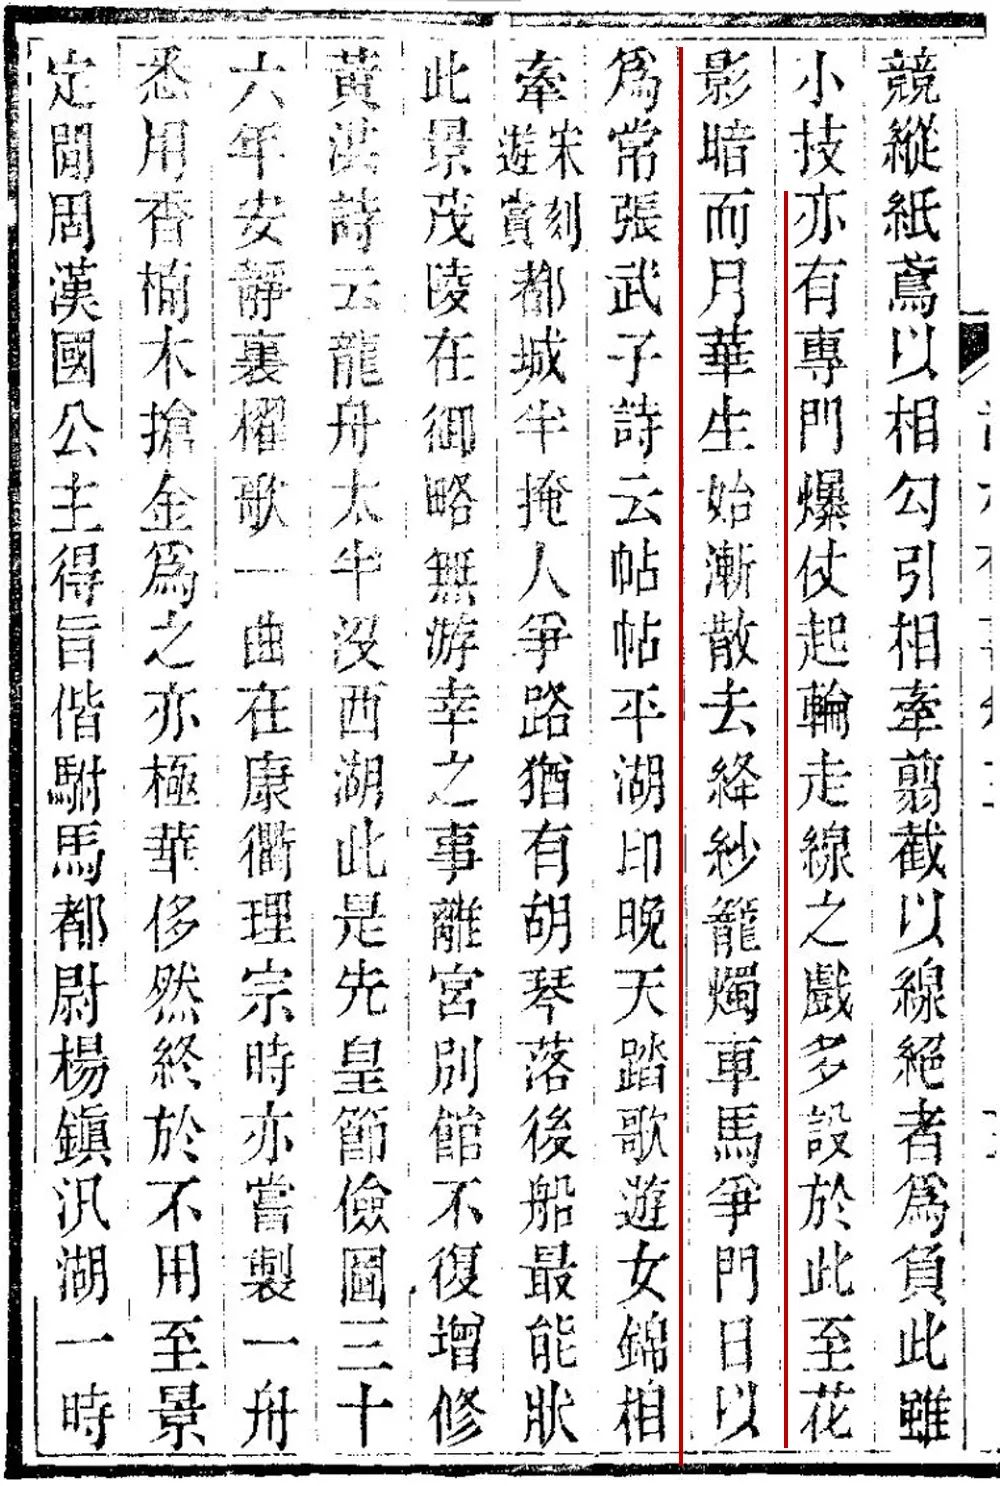 競縱紙鳶以相勾引相牽翦截以線絕者爲負此雖
小技亦有專門爆仗起輪走線之戲多設於此至花
影暗而月華生始漸散去絳紗籠燭車馬爭門日以
爲常張武子詩云帖帖平湖印晚天踏歌遊女錦相
牽宋刻遊賞都城半掩人爭路猶有胡琴落後船最能狀
此景茂陵在御略無游幸之事離宮別館不復增修
黃洪詩云龍舟太半沒西湖此是先皇節儉圖三十
六年安靜裏櫂歌一曲在康衢理宗時亦嘗製一舟
悉用香楠木搶金爲之亦極華侈然終於不用至景
定間周漢國公主得旨偕駙馬都尉楊鎭汎湖一時